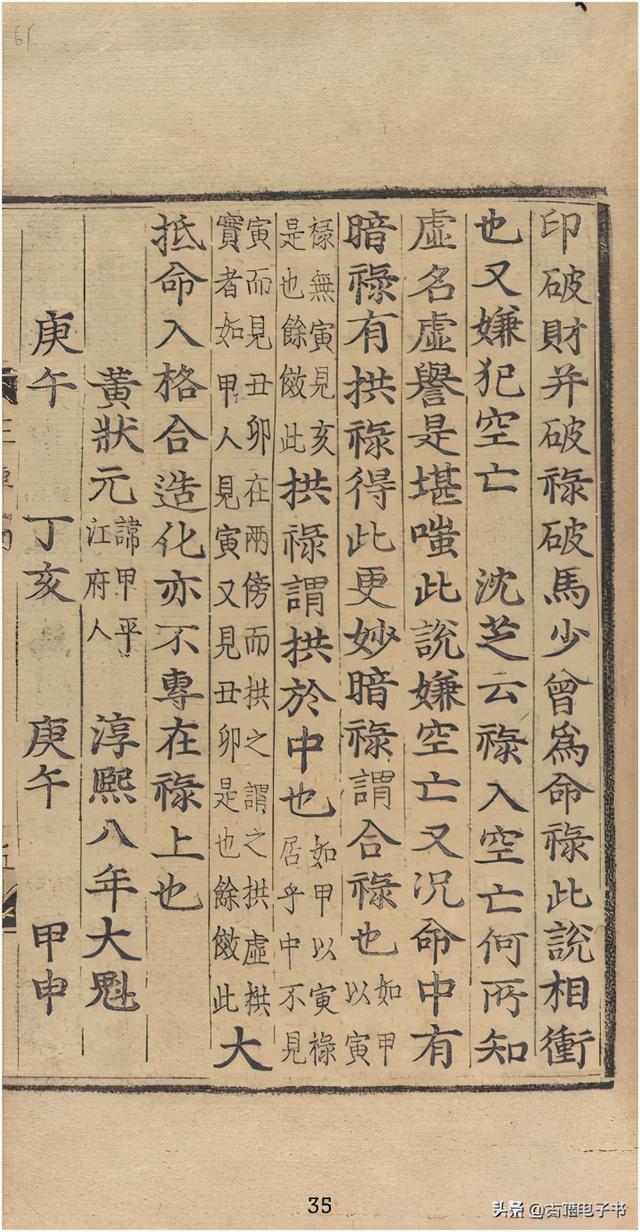 印破財并破祿破馬少曾爲命祿此說相衝
也又嫌犯空亡　沈芝云祿入空亡何所知
虛名虛譽是堪嗤此說嫌空亡又況命中有
暗祿有拱祿得此更妙暗祿謂合祿也如甲以寅
祿無寅見亥是也餘倣此拱祿謂拱於中也如甲以寅祿居乎中不見
寅而見丑卯在兩傍而拱之謂之拱虛拱實者如甲人見寅又見丑卯是也餘倣此大
抵命入格合造化亦不專在祿上也
黃狀元諱甲平江府人　淳熙八年大魁
庚午　丁亥　庚午　甲申
35
头条@古籍电子书